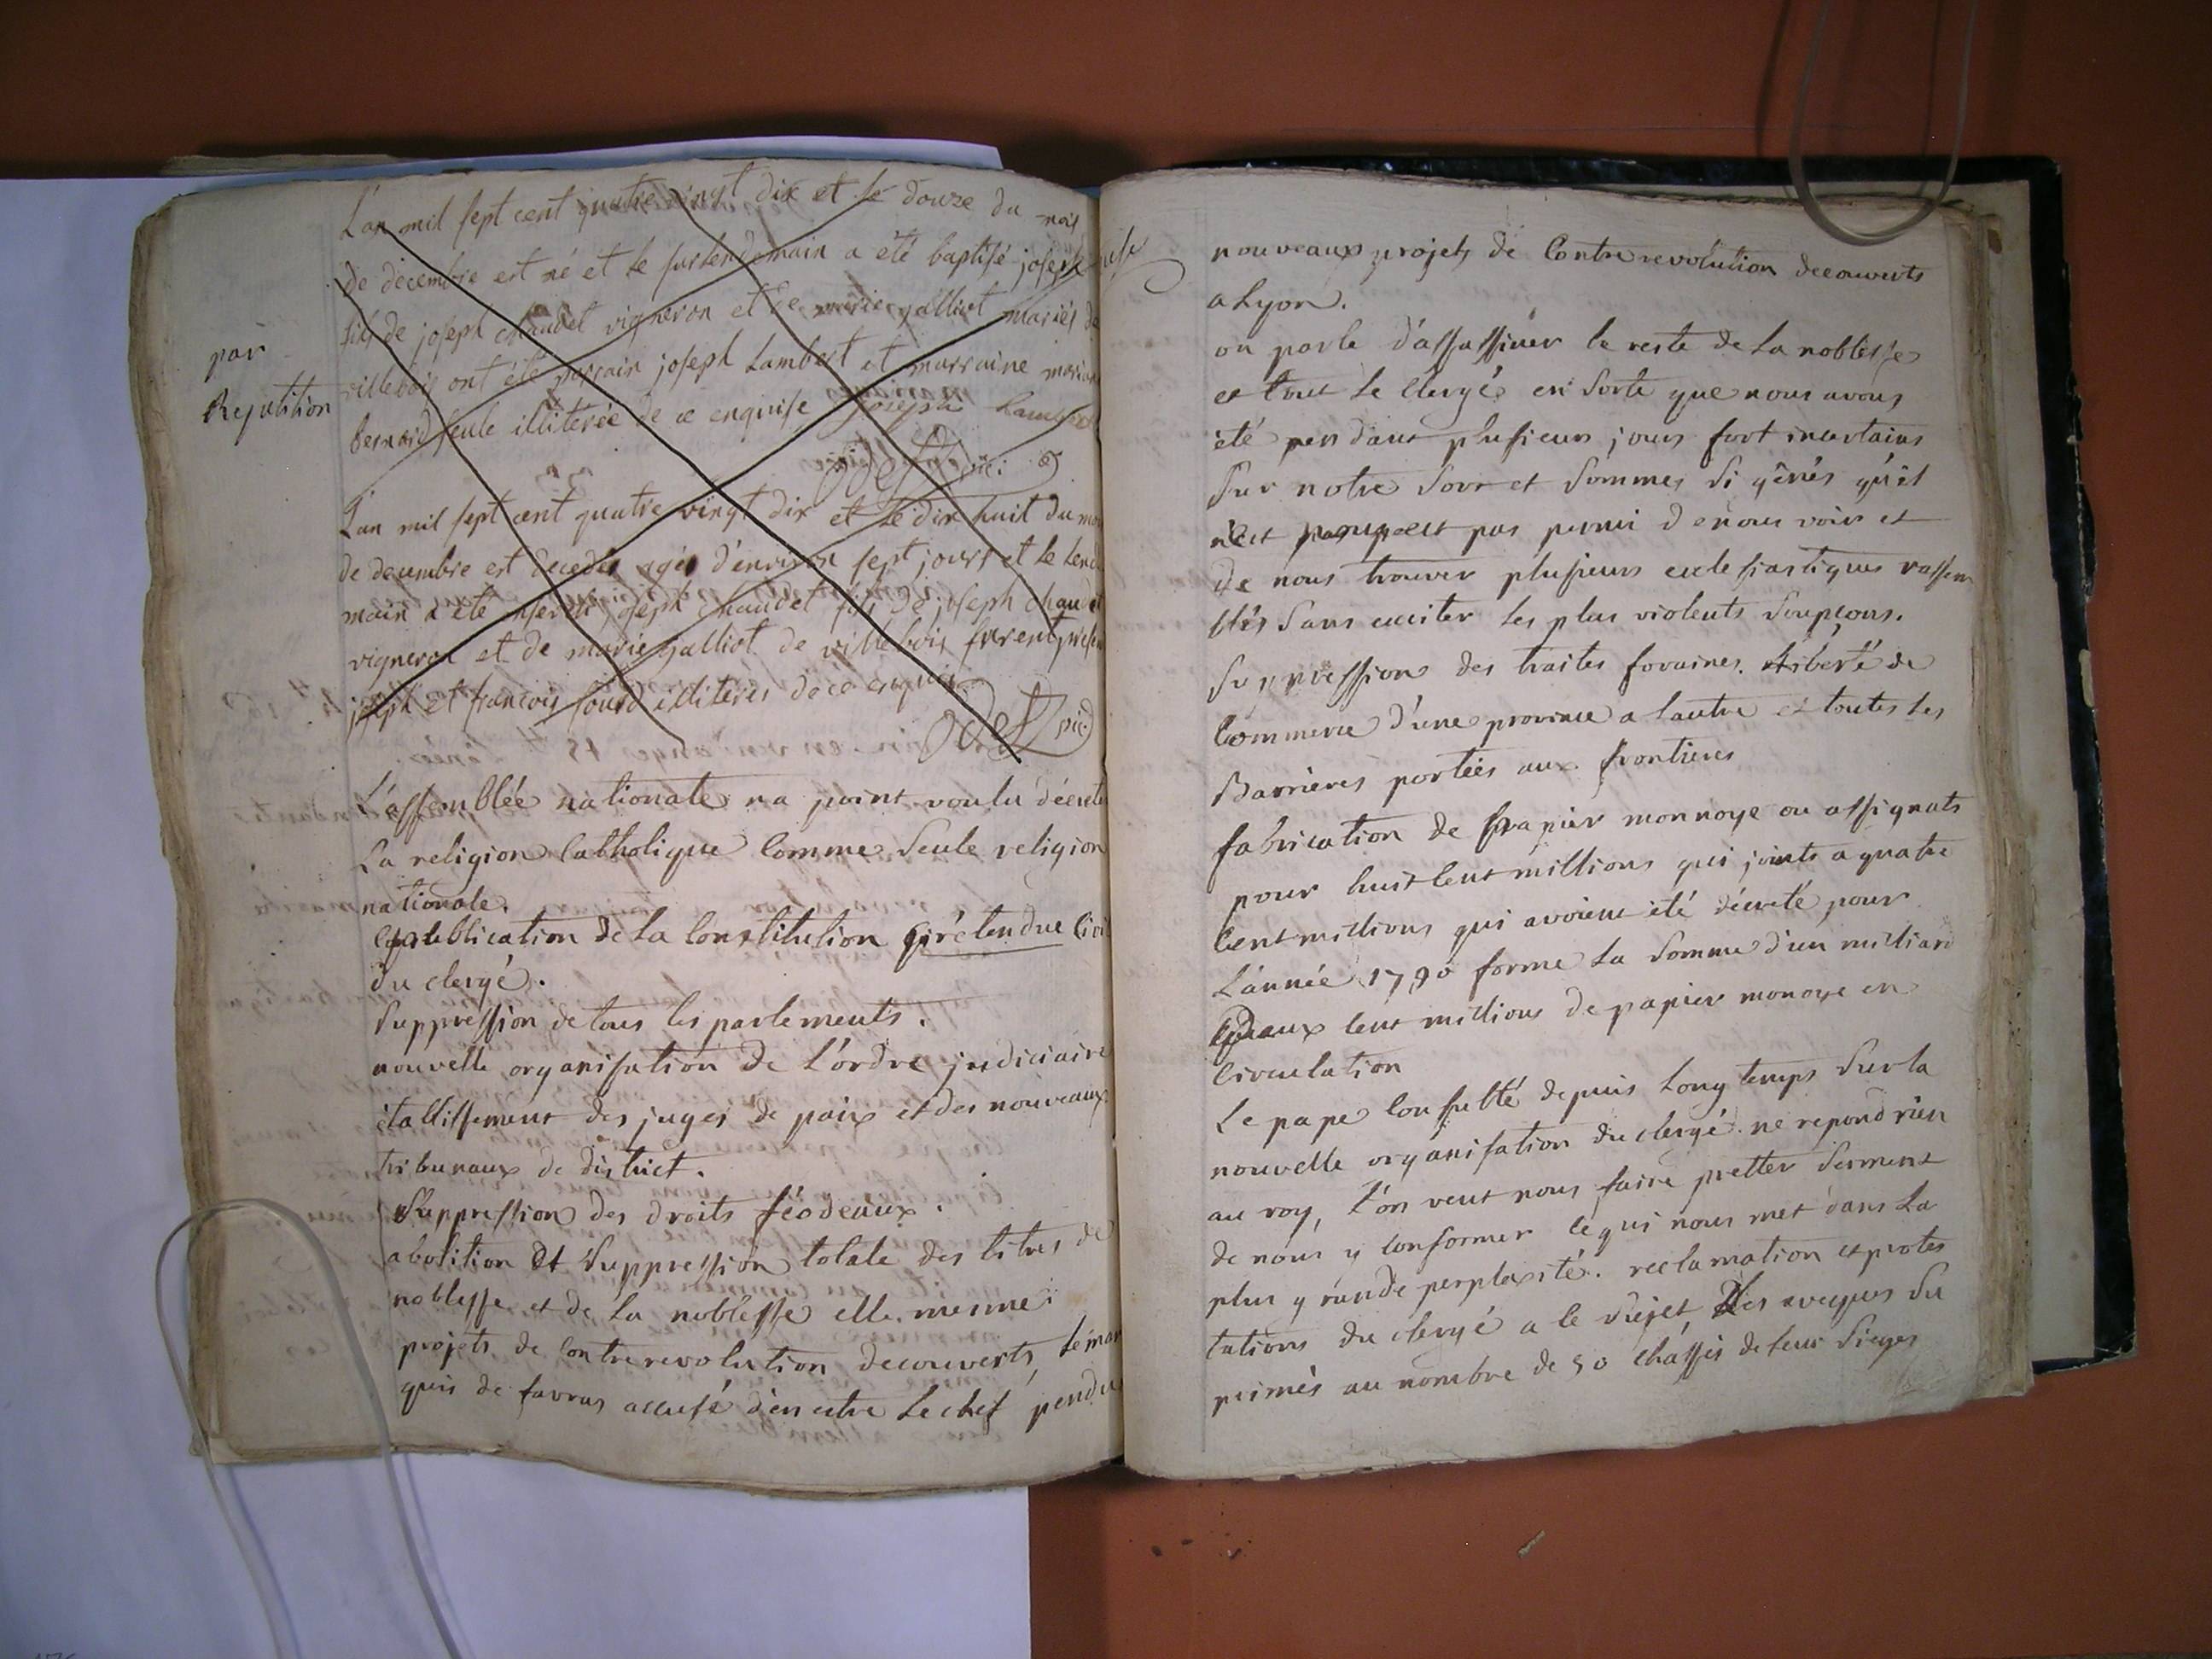 L'an mil sept cent quatre vingt dix et le douze du mois
de decembre est né et le surlendemain a été baptisé joseph
fils de joseph chaudet vigneron et de marie galliot mariés de
villebois ont été parrain joseph Lambert et marraine
bernard seule illiterée de ce enquise joseph Lambert
par
Repetition
L'an mil sept cent quatre vingt dix et le dix huit du mo
de decembre est decedé agé d'environ sept jours et le lend
main a été joseph chaudet fils de joseph chaudet
vigneron et de marie galliot de villebois furent
joseph et francois illiteres de ce enquis
L'assemblée nationale na point voulu décreter
La religion Catholique Comme Seule religion
nationale.
publication de la Constitution prétendue Civi
du clergé.
Suppression de tous les parlements.
nouvelle organisation de L'ordre judiciaire
établissement des juges de paix et des nouveaux
tribunaux de district.
Suppression des droits féodeaux.
abolition et Suppression totale des titres de
noblesse et de la noblesse elle mesme.
projets de Contrerevolution decouverts, le mar
quis de favras accusé d'en estre Le chef pendu
nouveaux projets de Contrerevolution decouverts
a Lyon.
on parle d'assassiner le reste de La noblesse
et tout Le Clergé en Sorte que nous avons
été pendant plusieurs jours fort incertains
Sur notre Sort et Sommes Si gênés qu'il
n'est pas permi de nous voir et
de nous trouver plusieurs ecclesiastiques rassem
blés Sans exciter les plus violents Soupçons.
Suppression des traites foraines. Liberté de
Commerce d'une province a lautre et toutes les
Barrières portées aux frontieres
fabrication de papier monnoye ou assignats
pour huit Cent millions qui joints a quatre
Cent millions qui avoient été décreté pour
L'année 1790 forme La Somme d'un milliard
deaux Cent millions de papier monoye en
Circulation
Le pape Consulté depuis Long temps Sur la
nouvelle organisation du clergé ne repond rien
au roy, L'on veut nous faire pretter Serment
de nous y Conformer ce qui nous met dans La
plus grande perplexité. reclamation et protes
tations du Clergé a Ce Sujet, Les eveques Su
primés au nombre de 50 Chassés de leur Sieges